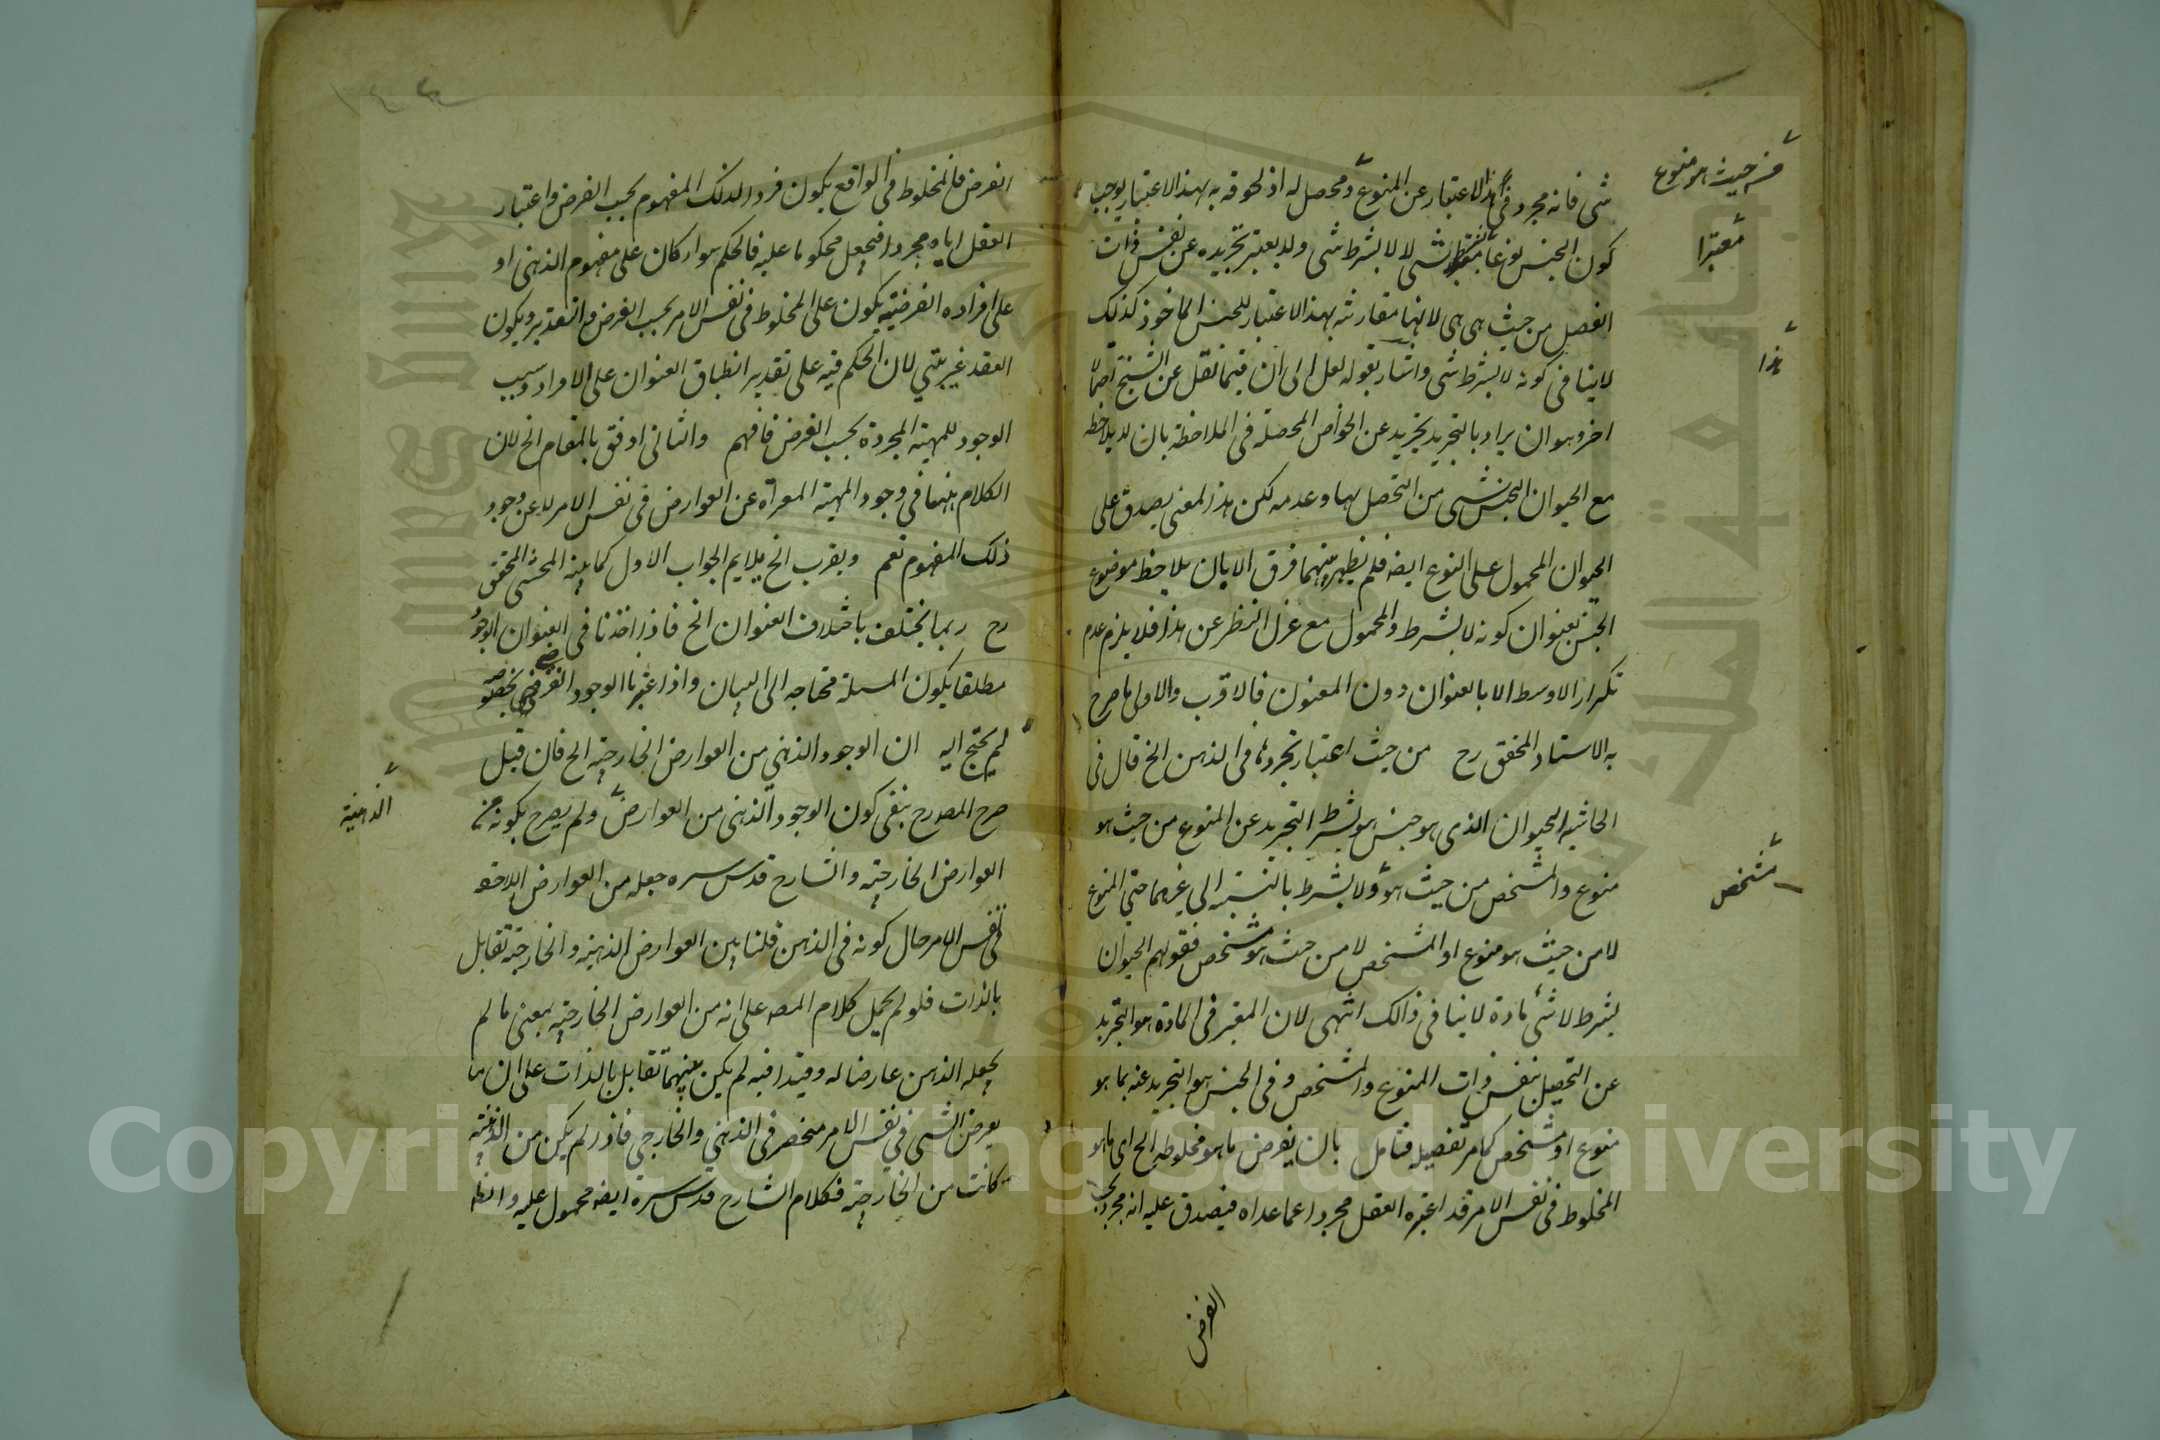 شئ فانه مجرد فى هذا الاعتبار عن المنوع ومحصل له اذ لحوقه به بهذا الاعتبار يوجب
كون الجنس نوعا بشرط شى لا لا بشرط شى ولم يعتبر تجريده عن نفس ذات
الفصل من حيث هى هى لانها مقارنته بهذا الاعتبار للجنس الماخوذ كذلك
لا ينافى كونه لا بشرط شى واشار بقوله لعل الى ان فيما نقل عن الشيخ احتمالا
اخر وهو ان يراد بالتجريد تجريد عن الخواص المحصلة فى الملاحظة بان لم يلاحظ
مع الحيوان الجنس شى من التحصل بها وعدمه لكن هذا المعنى يصدق على
الحيوان المحمول على النوع ايضه فلم يظهر بينهما فرق الا بان يلاحظ موضوع
الجنس بعنوان كونه لا بشرط والمحمول مع عزل النظر عن هذا فلا يلزم عدم
تكرار الاوسط الا بالعنوان دون المعنون فالاقرب والاولى ما صرح
به الاستاد المحقق رح من حيث اعتبار تجردها فى الذهن الخ قال فى
الحاشية الحيوان الذى هو جنس هو بشرط التجريد عن المنوع من حيث هو
منوع والمشخص من حيث هو ولا بشرط بالنسبة الى غيرهما حتى المنوع
لا من حيث هو منوع او المشخص لا من حيث هو مشخص فقولهم الحيوان
بشرط لا شئ مادة لا ينافى ذالك انتهى لان المعتبر فى المادة هو التجريد
عن التحصيل بنفس ذات المنوع والمشخص وفى الجنس هو التجريد عنه بما هو
منوع او مشخص كما مر تفصيله فتامل بان يفرض ما هو مخلوطه الخ اى ما هو
المخلوط فى نفس الامر قد اعتبره العقل مجردا عما عداه فيصدق عليه انه مجرد بحسب
الفرض
من حيث هو منوع
معتبرا
هذا
مشخص
الفرض فالمخلوط فى الواقع يكون فردا لذلك المفهوم بحسب الفرض واعتبار
العقل اياه مجردا فيجعل محكوما عليه فالحكم سواء كان على مفهوم الذهنى او
على افراده الفرضية يكون على المخلوط فى نفس الامر بحسب الفرض والتقدير ويكون
العقد غير بتي لان الحكم فيه على تقدير انطباق العنوان على الافراد وسبب
الوجود للمهية المجردة بحسب الفرض فافهم والثانى اوفق بالمقام الخ لان
الكلام ههنا فى وجود المهية المعراة عن العوارض فى نفس الامر لا عن وجود
ذلك المفهوم نعم وبقرب الخ يلايم الجواب الاول كما بينه المحشى المحقق
رح ربما يختلف باختلاف العنوان الخ فاذا اخذنا فى العنوان الوجود
مطلقا يكون المسئلة محتاجه الى البيان واذا اعتبرنا الوجود الفرضى بخصوصه
لم يحتج اليه ان الوجود الذهني من العوارض الخارجية الخ فان قيل
صرح المصرح بنفى كون الوجود الذهنى من العوارض ولم يصرح بكونه من
العوارض الخارجية والشارح قدس سره جعله من العوارض اللاحقة
فى نفس الامر حال كونه فى الذهن قلنا بين العوارض الذهنية والخارجية تقابل
بالذات فلو لم يحمل كلام المصه على انه من العوارض الخارجية بمعنى ما لم
يجعله الذهن عارضا له وقيدا فيه لم يكن بينهما تقابل بالذات على ان ما
يعرض الشى في نفس الامر منحصر فى الذهني والخارجي فاذا لم يكن من الذهنية
كانت من الخارجية فكلام الشارح قدس سره ايضه محمول عليه والظه
الذهنية
Copyright © King Saud University